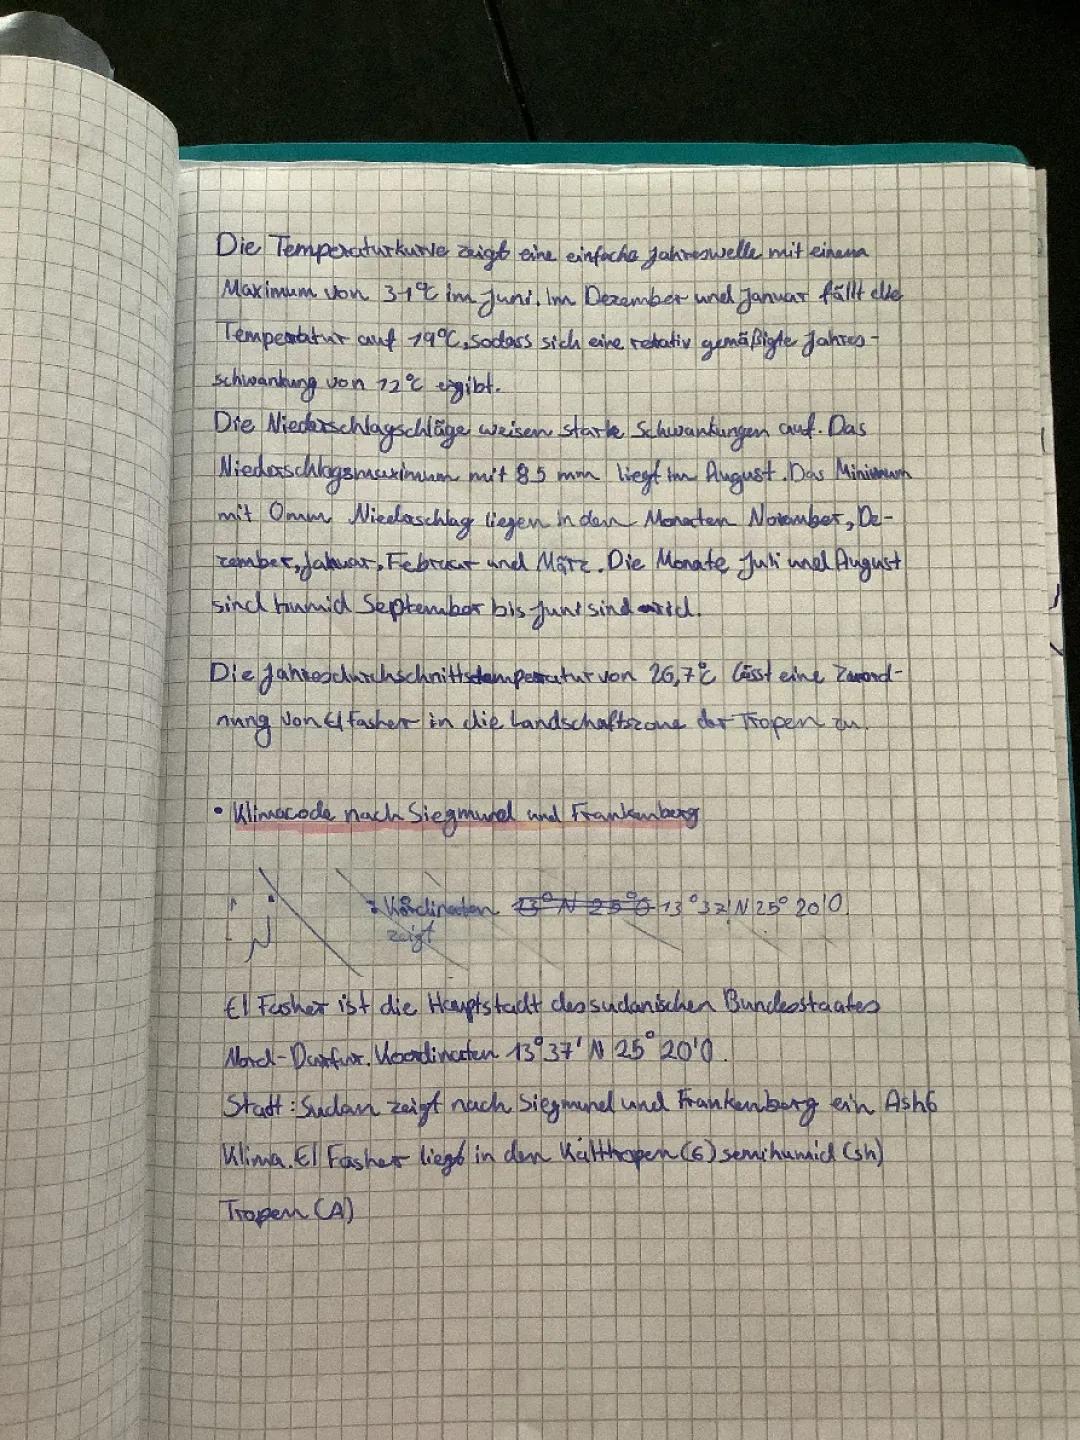 Die Temperaturkurve zeigt eine einfache Jahreswelle mit einem
Maximum von 31°C im Juni. Im Dezember und Januar fällt die
Temperatur auf 19°C, sodass sich eine relativ gemäßigte Jahres-
schwankung von 12°C ergibt.
Die Niederschlagschläge weisen starke Schwankungen auf. Das
Niederschlagsmaximum mit 85 mm liegt im August. Das Minimum
mit 0mm Niederschlag liegen in den Monaten November, De-
zember, Januar, Februar und März. Die Monate Juli und August
sind humid September bis Juni sind arid.
Die Jahresdurchschnittstemperatur von 26,7°C lässt eine Zuord-
nung von El Fasher in die Landschaftszone der Tropen zu.
• Klimacode nach Siegmund und Frankenberg
: Koordinaten 13°N 25°O 13°37'N 25° 20'O
zeigt
El Fasher ist die Hauptstadt des sudanischen Bundesstaates
Nord-Darfur. Koordinaten 13°37' N 25° 20'O.
Statt: Sudan zeigt nach Siegmund und Frankenberg ein Ash6
Klima. El Fasher liegt in den Kalttropen (6) semihumid (sh)
Tropen (A)